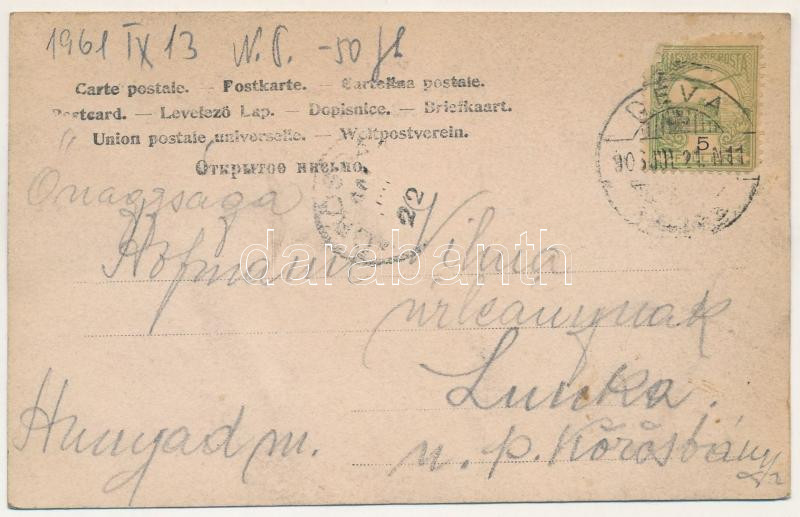 1961 IX 13 N.P. -50 fl
Carte postale. — Postkarte. — Cartolina postale.
Postcard. — Levelező Lap. — Dopisnice. — Briefkaart.
Union postale universelle. — Weltpostverein.
Открытое письмо.
MAGYAR KIR. POSTA
5
DÉVA
22
Őnagysága
Hofmann Vilma
úrleánynak
Lunka.
u. p. Kőrösbánya
Hunyad m.
darabanth